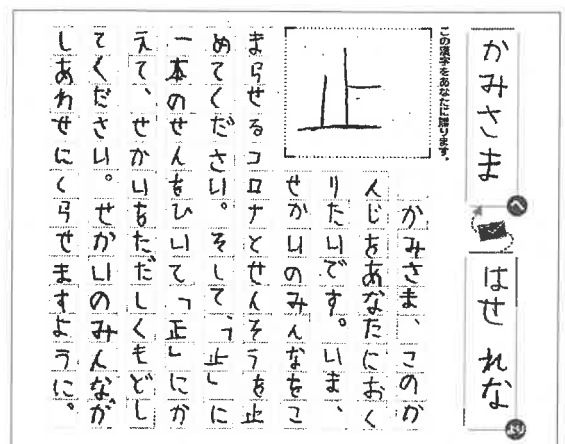 かみさま へ
はせ れな より
この漢字をあなたに贈ります。
止
かみさま、このか
んじをあなたにおく
りたいです。いま、
せかいのみんなをこ
まらせるコロナとせんそうを止
めてください。そして、「止」に
一本のせんをひいて「正」にか
えて、せかいをただしくもどし
てください。せかいのみんなが
しあわせにくらせますように。